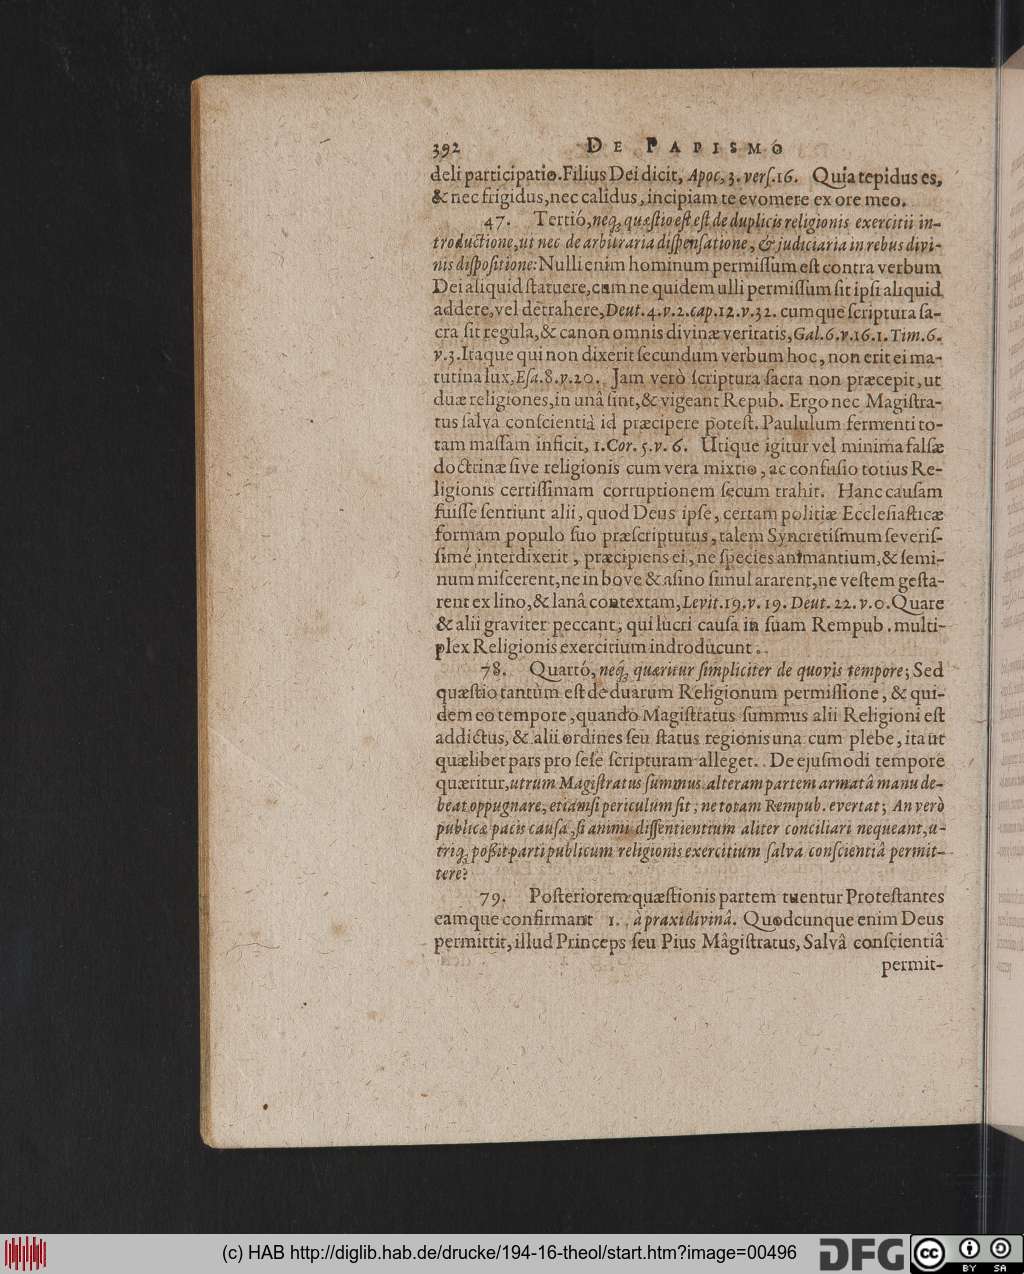 392 DE PAPISMO
deli participatio. Filius Dei dicit, Apoc, 3. verſ. 16. Quia tepidus es,
& nec frigidus, nec calidus, incipiam te evomere ex ore meo.
47. Tertió, neq; quæſtio eſt eſt de duplicis religionis exercitii in-
troductione, ut nec de arbitraria diſpenſatione, & judiciaria in rebus divi-
nis diſpoſitione: Nulli enim hominum permiſſum eſt contra verbum
Dei aliquid ſtatuere, cum ne quidem ulli permiſſum ſit ipſi aliquid
addere, vel detrahere, Deut. 4. v. 2. cap. 12. v. 32. cumque ſcriptura ſa-
cra ſit regula, & canon omnis divinæ veritatis, Gal. 6. v. 16. 1. Tim. 6.
v. 3. Itaque qui non dixerit ſecundum verbum hoc, non erit ei ma-
tutina lux, Eſa. 8. v. 20. Jam verò ſcriptura ſacra non præcepit, ut
duæ religiones, in unâ ſint, & vigeant Repub. Ergo nec Magiſtra-
tus ſalva conſcientiâ id præcipere poteſt. Paululum fermenti to-
tam maſſam inficit, 1. Cor. 5. v. 6. Utique igitur vel minima falſæ
doctrinæ ſive religionis cum vera mixtio, ac confuſio totius Re-
ligionis certiſſimam corruptionem ſecum trahit. Hanc cauſam
fuiſſe ſentiunt alii, quod Deus ipſe, certam politiæ Eccleſiaſticæ
formam populo ſuo præſcripturus, talem Syncretiſmum ſeveriſ-
ſimé interdixerit, præcipiens ei, ne ſpecies animantium, & ſemi-
num miſcerent, ne in bove & aſino ſimul ararent, ne veſtem geſta-
rent ex lino, & lanâ contextam, Levit. 19. v. 19. Deut. 22. v. 0. Quare
& alii graviter peccant, qui lucri cauſa in ſuam Rempub. multi-
plex Religionis exercitium indroducunt.
78. Quartó, neq; quæritur ſimpliciter de quovis tempore; Sed
quæſtio tantùm eſt de duarum Religionum permiſſione, & qui-
dem eo tempore, quando Magiſtratus ſummus alii Religioni eſt
addictus, & alii ordines ſeu ſtatus regionis una cum plebe, ita ut
quælibet pars pro ſeſe ſcripturam alleget. De ejuſmodi tempore
quæritur, utrum Magiſtratus ſummus alteram partem armatâ manu de-
beat oppugnare, etiamſi periculum ſit; ne totam Rempub. evertat; An verò
publicæ pacis cauſa, ſi animi diſſentientium aliter conciliari nequeant, u-
triq; poßit parti publicum religionis exercitium ſalva conſcientiâ permit-
tere?
79. Poſteriorem quæſtionis partem tuentur Proteſtantes
eamque confirmant 1. à praxi divinâ. Quodcunque enim Deus
permittit, illud Princeps ſeu Pius Mágiſtratus, Salvâ conſcientiâ
permit-
(c) HAB http://diglib.hab.de/drucke/194-16-theol/start.htm?image=00496
DFG
cc BY SA